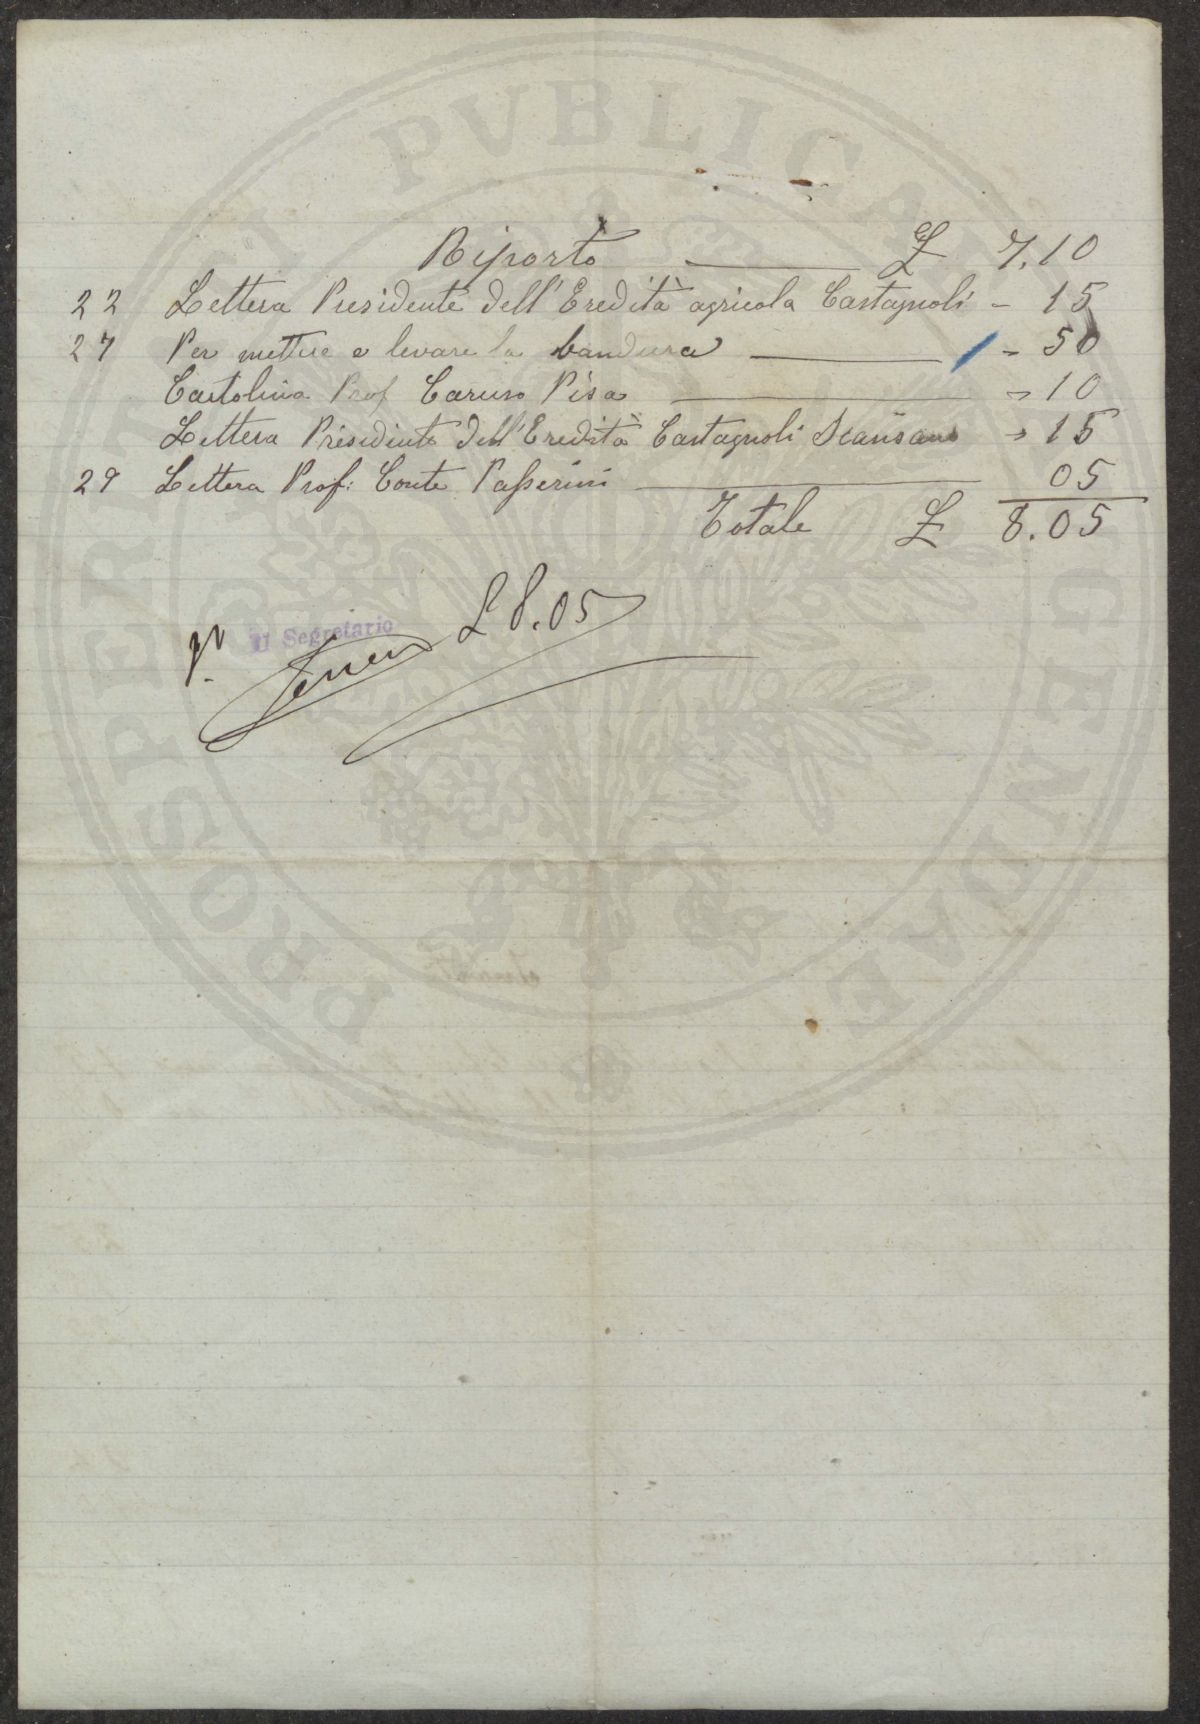 PROSPERITATI PVBLICAE AVGENDAE
Riporto £ 7.10
22 Lettera Presidente dell'Eredità agricola Castagnoli - 15
27 Per mettere e levare la bandiera - 50
Cartolina Prof Caruso Pisa - 10
Lettera Presidente dell'Eredità Castagnoli Scansano - 15
29 Lettera Prof: Conte Passerini 05
Totale £ 8.05
V.
Il Segretario
£ 8.05